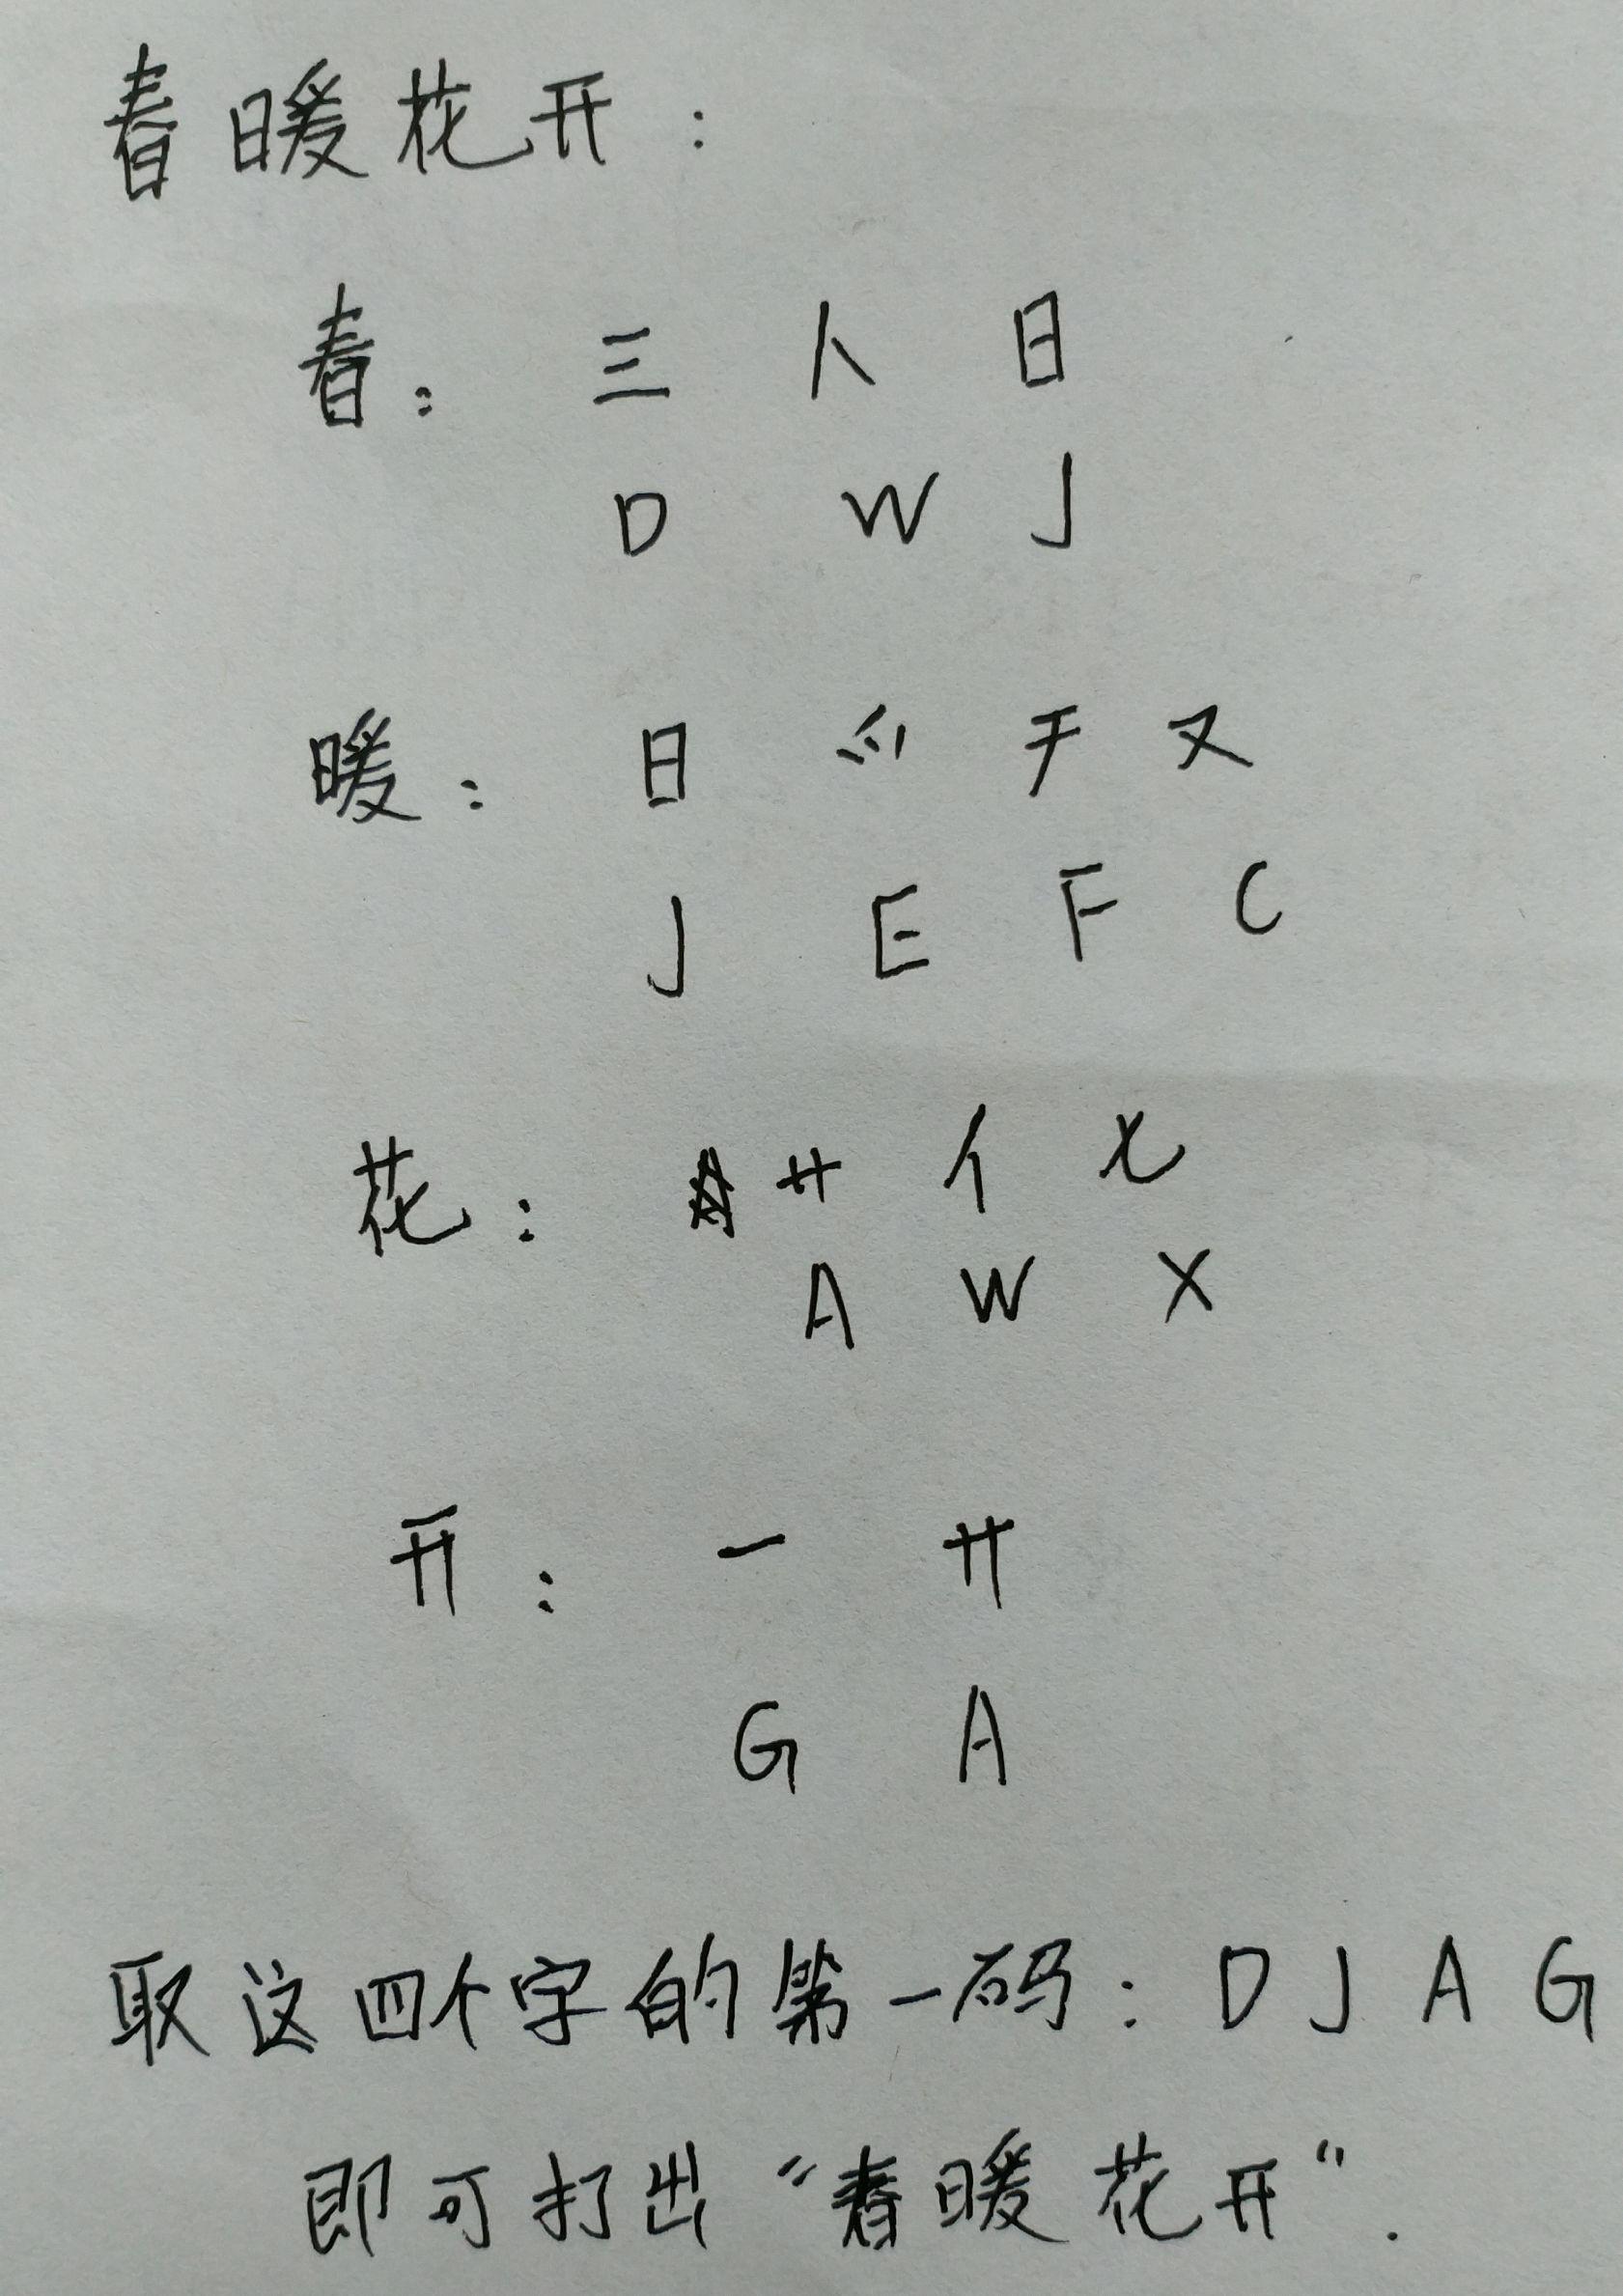 春暖花开:
春: 三 人 日
D W J
暖: 日 爫 𠂇 又
J E F C
花: 艹 亻 匕
A W X
开: 一 廾
G A
取这四个字的第一码: D J A G
即可打出“春暖花开”.